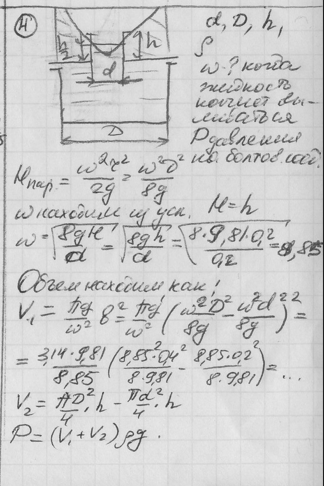 4
d, D, h,
ρ
h/2
h
ω-? когда
d
жидкость
начнет вы-
ливаться
D
P давления
на болтов. соед.
Hпар. = ω²r²/2g = ω²D²/8g
ω находим из усл. H=h
ω = √8gH/d = √8gh/d = √8·9,81·0,2/0,2 = 8,85
Объем находим как:
V₁ = πg/ω² z² = πg/ω² (ω²D²/8g - ω²d²/8g)² =
= 3,14·9,81/8,85 (8,85²·0,4²/8·9,81 - 8,85·0,2²/8·9,81) = ...
V₂ = πD²/4 · h - πd²/4 · h
P = (V₁ + V₂) ρg.